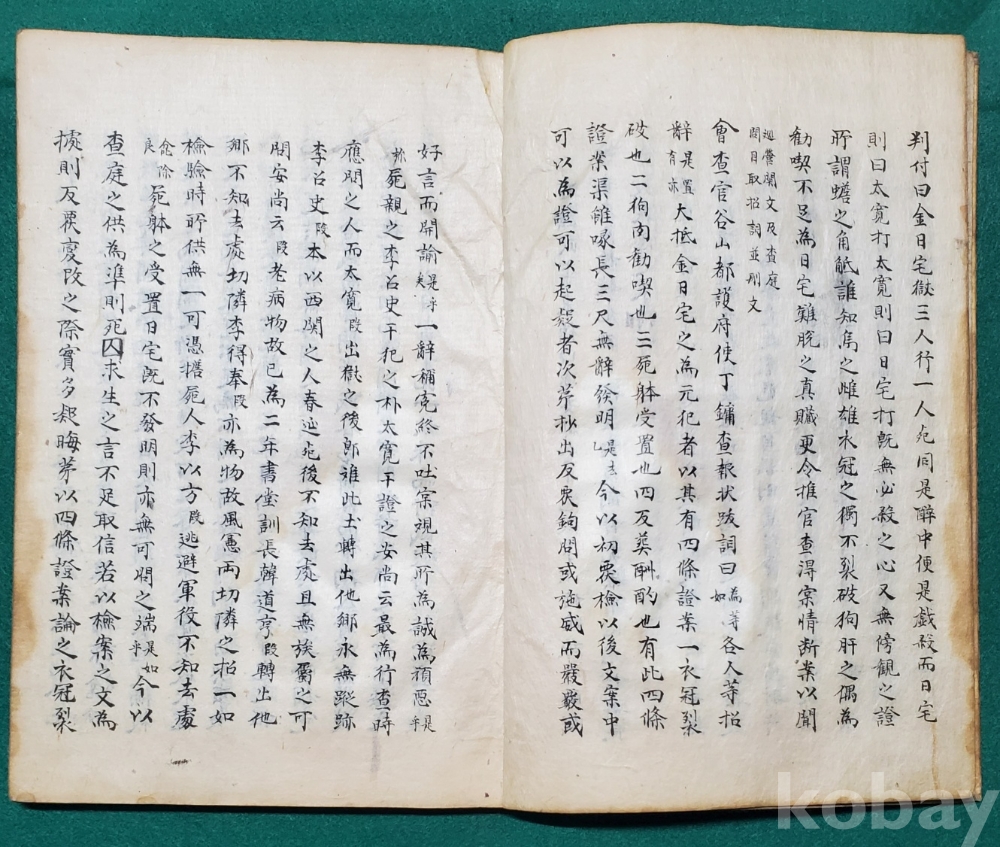 判付曰金日宅獄三人行一人死同是醉中便是戱殺而日宅
則曰太寬打太寬則曰日宅打旣無必殺之心又無傍觀之證
所謂蟾之角觝誰知烏之雌雄水冠之獨不裂破狗肝之偶爲
勸喫不足爲日宅難脫之眞贓更令推官查得案情斷案以聞
巡營關文及査庭
問目取招詞並刑文
會查官谷山都護府使丁鏞查報狀跋詞曰 爲等如 各人等招
辭 是置有亦 大抵金日宅之爲元犯者以其有四條證案一衣冠裂
破也二狗肉勸喫也三死躰受置也四反葬酬酌也有此四條
證案渠雖喙長三尺無辭發明 是去乙 今以初覆檢以後文案中
可以爲證可以起疑者次第抄出反覆鉤問或施威而嚴覈或
好言而開諭 是乎矣 一辭稱寃終不吐實視其所爲誠爲頑惡 是乎
旀 屍親之李召史干犯之朴太寬干證之安尙云最爲行查時
應問之人而太寬 段 出獄之後郎離此土轉出他鄕永無蹤跡
李召史 段 本以西關之人春 死後不知去處且無族屬之可
問安尙云 段 老病物故已爲二年書堂訓長韓道亨 段 轉出他
鄕不知去處切隣李得奉 段 亦爲物故風憲両切隣之招一如
檢驗時所供無一可憑據屍人李以方 段 逃避軍役不知去處
是 除良 死躰之受置日宅旣不發明則亦無可問之端 是如乎 今以
查庭之供爲準則死囚求生之言不足取信若以檢案之文爲
據則反覆變改之際實多起晦第以四條證案論之衣冠裂
kobay